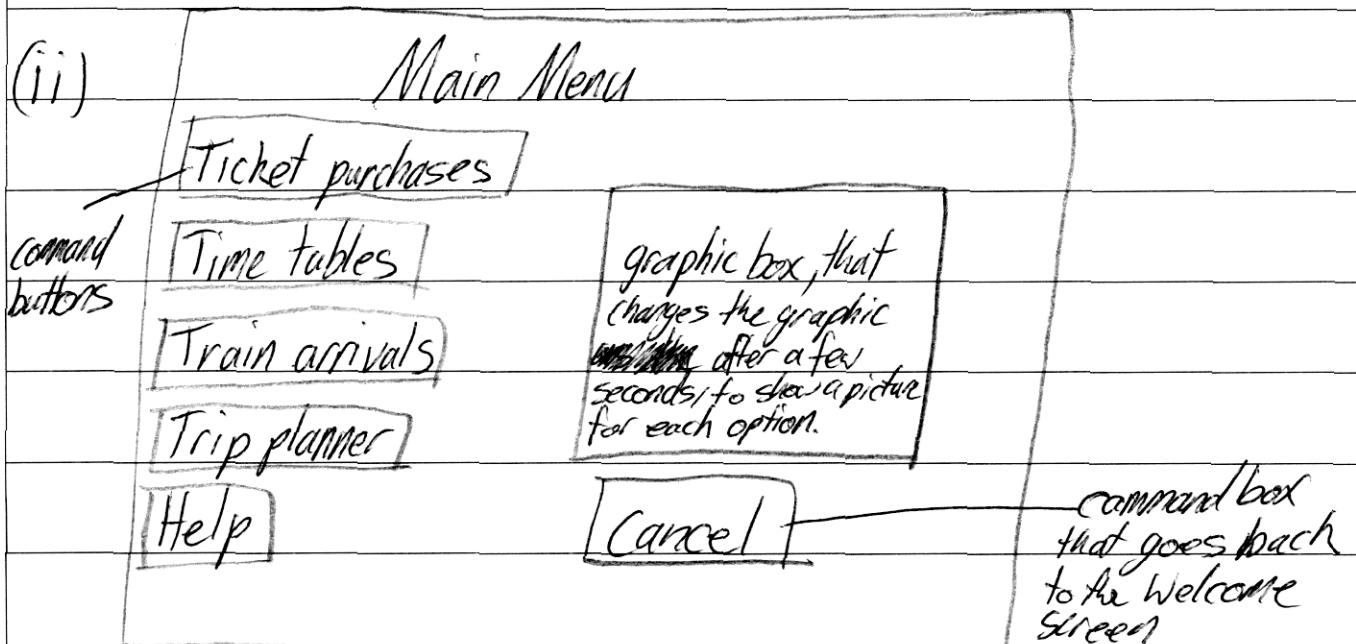 (ii)
Main Menu
Ticket purchases
command
buttons
Time tables
Train arrivals
Trip planner
Help
graphic box, that
changes the graphic
after a few
seconds, to show a picture
for each option.
Cancel
command box
that goes back
to the Welcome
screen